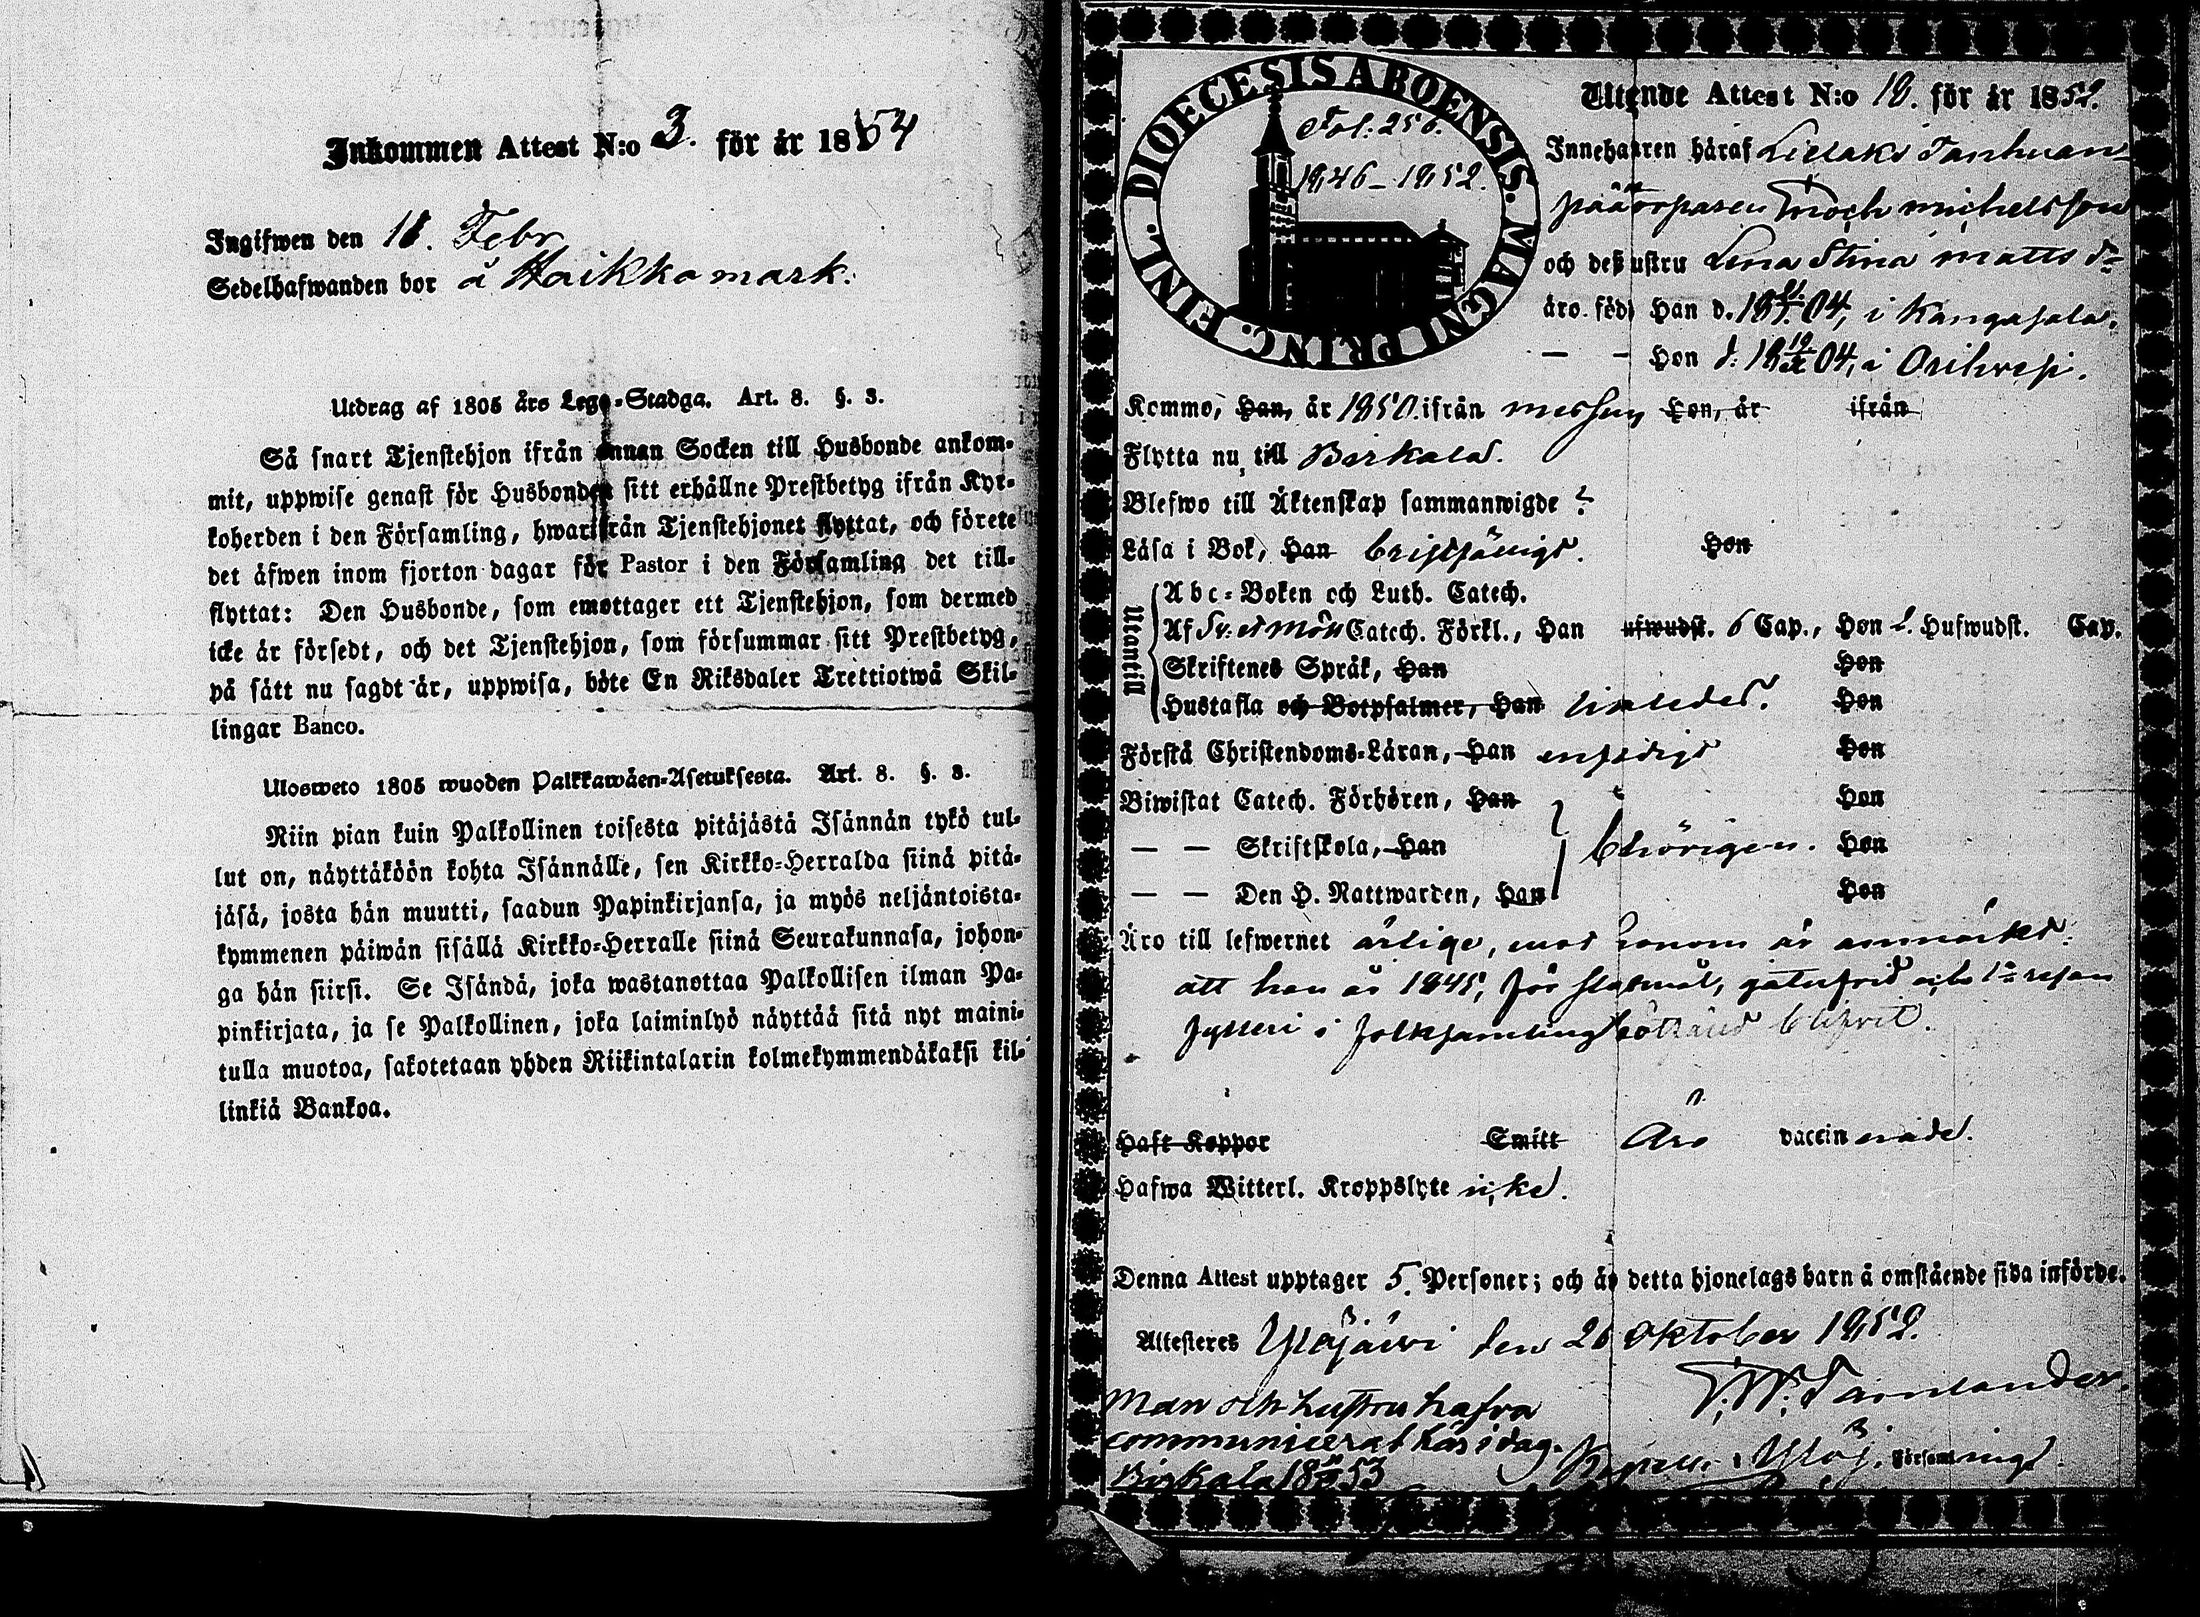 Inkommen Attest N:o 3. för år 1854
Ingifwen den 18. Febr
Sedelhafwanden bor å Haikka mark.
Utdrag af 1805 års Lego-Stadga. Art. 8. §. 3.
Så snart Tjenstehjon ifrån annan Socken till Husbonde ankom-
mit, uppwise genast för Husbonden sitt erhållne Prestbetyg ifrån Kyr-
koherden i den Församling, hwarifrån Tjenstehjonet flyttat, och förete
det äfwen inom fjorton dagar för Pastor i den Församling det till-
flyttat: Den Husbonde, som emottager ett Tjenstehjon, som dermed
icke är försedt, och det Tjenstehjon, som försummar sitt Prestbetyg,
på sätt nu sagdt är, uppwisa, böte En Riksdaler Trettiotwå Skil-
lingar Banco.
Uloswetο 1805 wuoden Palkkawäen-Asetuksesta. Art. 8. §. 3.
Niin pian kuin Palkollinen toisesta pitäjästä Isännän tykö tul-
lut on, näyttäköön kohta Isännälle, sen Kirkko-Herralda siinä pitä-
jäsä, josta hän muutti, saadun Papinkirjansa, ja myös neljäntoista-
kymmenen päiwän sisällä Kirkko-Herralle siinä Seurakunnasa, johon-
ga hän siirsi. Se Isändä, joka wastanottaa Palkollisen ilman Pa-
pinkirjata, ja se Palkollinen, joka laiminlyö näyttää sitä nyt maini-
tulla muotoa, sakotetaan yhden Riikintalarin kolmekymmendäkaksi kil-
linkiä Bankoa.
DIOECESIS ABOENSIS. MAGNI PRINC. FINL.
Fol: 256.
1846-1852.
Utgående Attest N:o 18. för år 1852.
Innehafwaren häraf
Enoch Michelsson
och dess hustru Lena Stina Matts dr
äro födde Han d. 18 04, i Kangasala.
— — Hon d. 18 19/IX 04, i Orihvesi.
Komme, Han, år 1850 ifrån Messuby Hon, år ifrån
Flytta nu till Birkala.
Blefwo till Äktenskap sammanwigde ?
Läsa i Bok, Han bristfälligt. Hon
Utantill
Abc-Boken och Luth. Catech.
Af Catech. Förkl., Han ufwudst. 6 Cap., Hon 2. Hufwudst. Cap.
Skriftenes Språk, Han Hon
Hustafla och Botpsalmer, Han Hon
Förstå Christendoms-Läran, Han enfaldigt Hon
Biwistat Catech. Förhören, Han Hon
— — Skriftskola, Han behörigen. Hon
— — Den H. Nattwarden, Han Hon
Äro till lefwernet ärlige, mot honom är anmärkt:
att han år 1845, för slagsmål, gatufrid och 1:a resan
fylleri i folksamling bötfälld blifvit.
Haft Koppor Smitt Äro vaccinerade.
Hafwa Witterl. Kroppslyte icke.
Denna Attest upptager 5. Personer; och är detta hjonelags barn å omstående sida införde.
Attesteres Ylöjärvi den 26 Oktober 1852.
Man och hustru hafva
communicerat här i dag.
Birkala 18 53
Ylöj. Församlings